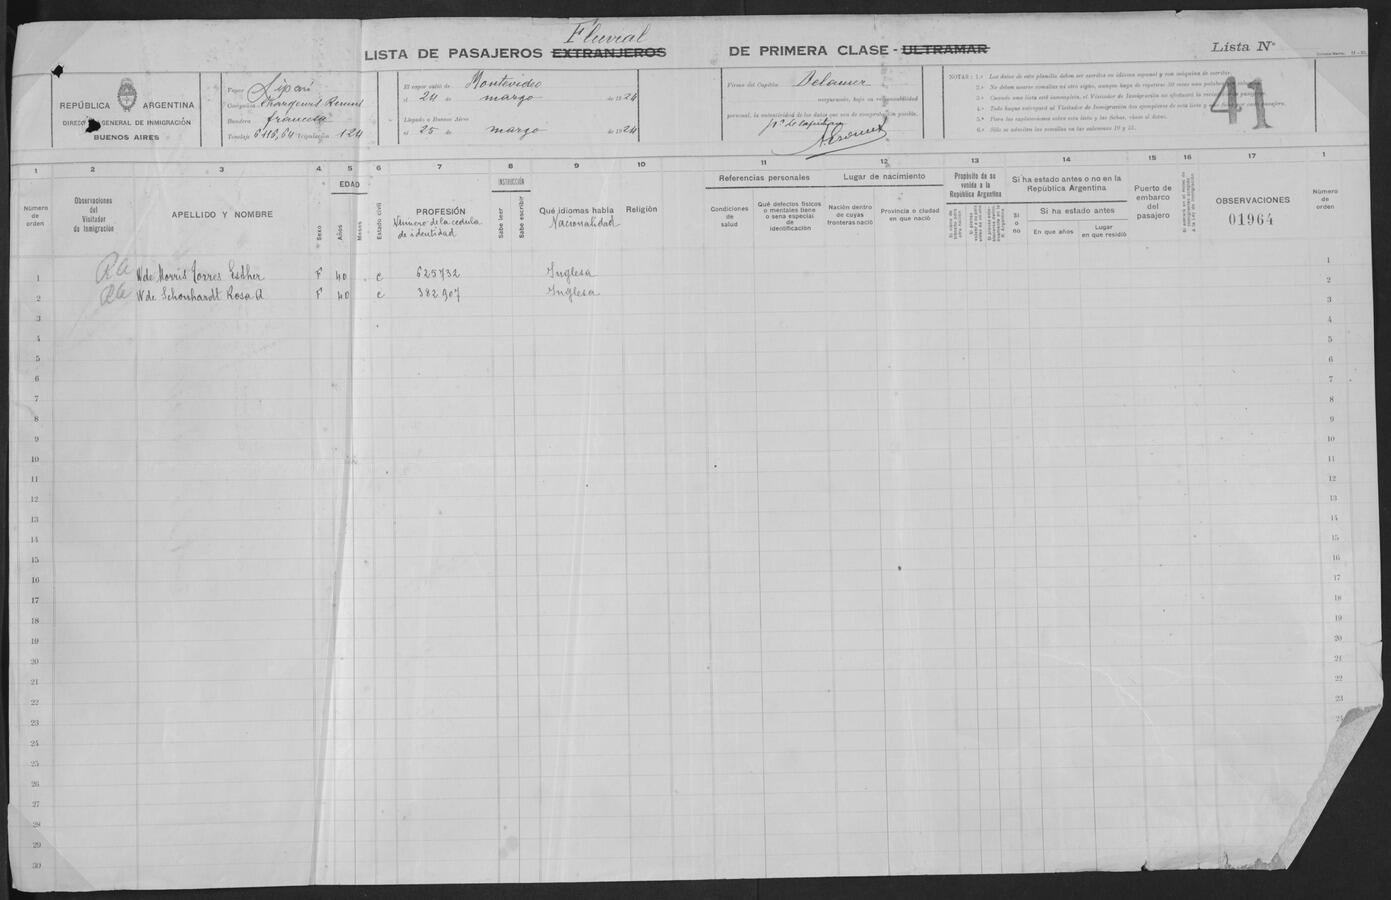 Fluvial
LISTA DE PASAJEROS EXTRANJEROS DE PRIMERA CLASE - ULTRAMAR
Lista Nº
41
REPÚBLICA ARGENTINA
GENERAL DE INMIGRACIÓN
BUENOS AIRES
Vapor Lipari
Chargeurs Reunis
Bandera francesa
Tonelaje 6116,64 Tripulación 124
El vapor salió de Montevideo
el 24 de marzo de 1924
Llegado a Buenos Aires
el 25 de marzo de 1924
Firma del Capitán Delamer
aseguranda, bajo su responsabilidad
personal, la autenticidad de los datos que son de comprobación posible.
NOTAS: 1.ª Los datos de esta planilla deben ser escritos en idioma español y con máquina de escribir.
1 2 3 4 5 6 7 8 9 10 11 12 13 14 15 16 17 1
Número de orden
Observaciones del Visitador de Inmigración
APELLIDO Y NOMBRE
Sexo
EDAD
Años
Meses
Estado civil
PROFESIÓN
Número de la cedula de identidad
INSTRUCCIÓN
Sabe leer
Sabe escribir
Qué idiomas habla
Nacionalidad
Religión
Referencias personales
Condiciones de salud
Qué defectos físicos o mentales tiene o sena especial de identificación
Lugar de nacimiento
Nación dentro de cuyas fronteras nació
Provincia o ciudad en que nació
Propósito de su venida a la República Argentina
Si ha estado antes o no en la República Argentina
Sí o no
Si ha estado antes
En que años
Lugar en que residió
Puerto de embarco del pasajero
OBSERVACIONES
01964
Número de orden
1 W de Morris Torres Esther F 40 c 625732 Inglesa 1
2 W de Schonhardt Rosa A F 40 c 382907 Inglesa 2
3 3
4 4
5 5
6 6
7 7
8 8
9 9
10 10
11 11
12 12
13 13
14 14
15 15
16 16
17 17
18 18
19 19
20 20
21 21
22 22
23 23
24
25
26
27
28
29
30